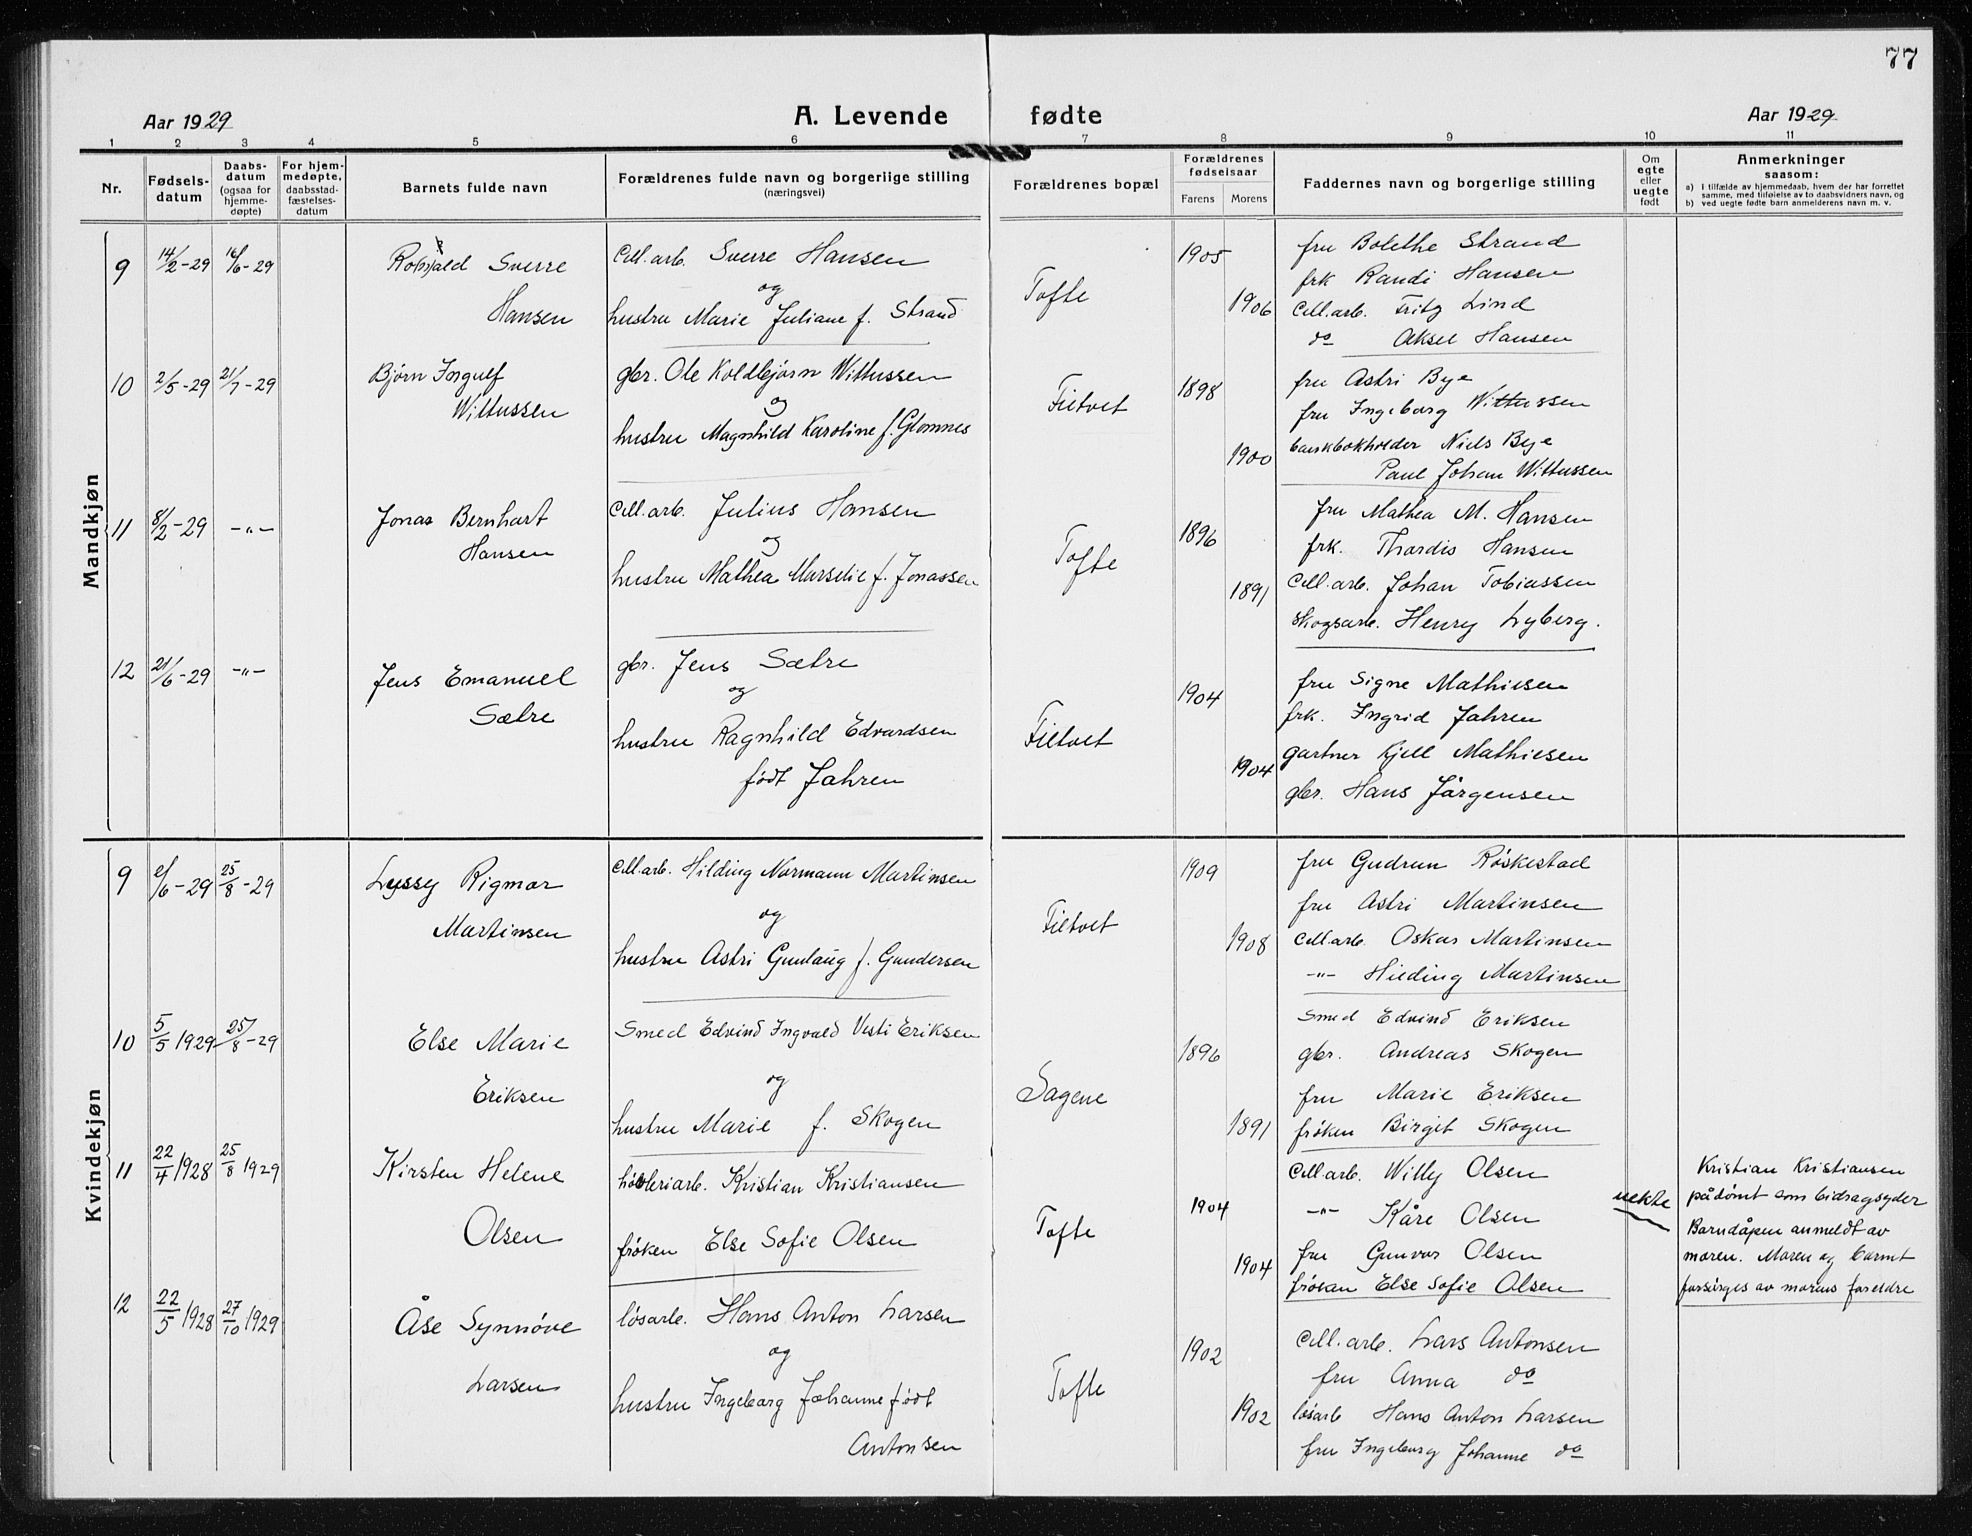 77
Aar 1929
A. Levende fødte
Aar 1929
1 2 3 4 5 6 7 8 9 10 11
Nr.
Fødsels-
datum
Daabs-
datum
(ogsaa for
hjemme-
døpte)
For hjem-
medøpte,
daabsstad-
fæstelses-
datum
Barnets fulde navn
Forældrenes fulde navn og borgerlige stilling
(næringsvei)
Forældrenes bopæl
Forældrenes
fødselsaar
Farens Morens
Faddernes navn og borgerlige stilling
Om
egte
eller
uegte
født
Anmerkninger
saasom:
a) i tilfælde av hjemmedaab, hvem der har forrettet
samme, med tilføielse av to daabsvidners navn, og
b) ved uegte fødte barn anmelderens navn m. v.
Mandkjøn
9
14/2-29
16/6-29
Sverre
Hansen
Cell.arb. Sverre Hansen
og
hustru Marie Juliane f. Strand
Tofte
1905
1906
fru Bolethe Strand
frk Randi Hansen
Cell.arb. Fritz Lind
do Aksel Hansen
10
2/5-29
21/7-29
Bjørn Ingulf
Wittussen
gbr. Ole Koldbjørn Wittussen
og
hustru Magnhild Karoline f. Glomnes
Filtvet
1898
1900
fru Astri Bye
fru Ingeborg Wittussen
bankbokholder Niels Bye
Paul Johan Wittussen
11
8/2-29
-"-
Jonas Bernhart
Hansen
Cell.arb. Julius Hansen
og
hustru Mathea Marselie f. Jonassen
Tofte
1896
1891
fru Mathea M. Hansen
frk. Thordis Hansen
Cell.arb. Johan Tobiassen
skogsarb. Henry Lyberg.
12
21/6-29
-"-
Jens Emanuel
Sætre
gbr. Jens Sætre
og
hustru Ragnhild Edvardsen
født Jahren
Filtvet
1904
1904
fru Signe Mathiesen
frk. Ingrid Jahren
gartner Kjell Mathiesen
gbr. Hans Jørgensen
Kvindekjøn
9
/6-29
25/8-29
Lyssy Rigmor
Martinsen
Cell.arb. Hilding Normann Martinsen
og
hustru Astri Gunlaug f. Gundersen
Filtvet
1909
1908
fru Gudrun Røskestad
fru Astri Martinsen
Cell.arb. Oskar Martinsen
-"- Hilding Martinsen
10
5/5 1929
25/8-29
Else Marie
Eriksen
Smed Edvind Ingvald Vesti Eriksen
og
hustru Marie f. Skogen
Sagene
1896
1891
Smed Edvind Eriksen
gbr. Andreas Skogen
fru Marie Eriksen
frøken Birgit Skogen
11
22/4 1928
25/8 1929
Kirsten Helene
Olsen
høvleriarb. Kristian Kristiansen
frøken Else Sofie Olsen
Tofte
1904
1904
Cell.arb. Willy Olsen
-"- Kåre Olsen
fru Gunvor Olsen
frøken Else Sofie Olsen
uekte
Kristian Kristiansen
pådømt som bidragsyder
Barndåpen anmeldt av
moren. Moren og barnet
forsørges av morens foreldre
12
22/5 1928
27/10 1929
Åse Synnøve
Larsen
løsarb. Hans Anton Larsen
og
hustru Ingeborg Johanne født
Antonsen
Tofte
1902
1902
Cell.arb. Lars Antonsen
fru Anna do
løsarb Hans Anton Larsen
fru Ingeborg Johanne do